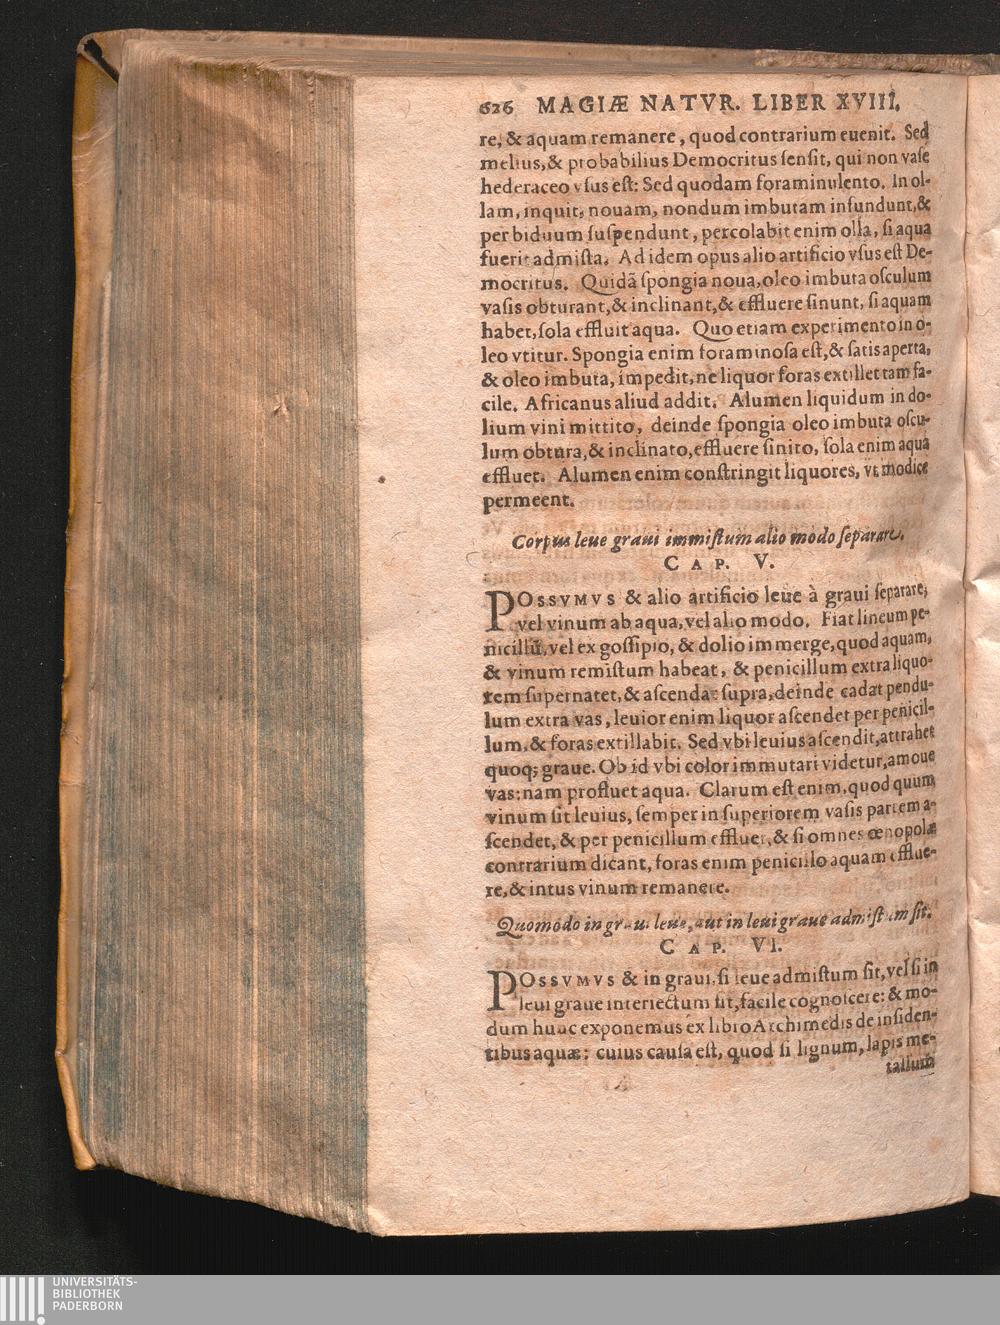 626 MAGIÆ NATVR. LIBER XVIII.
re, & aquam remanere, quod contrarium euenit. Sed
melius, & probabilius Democritus ſenſit, qui non vaſe
hederaceo vſus eſt: Sed quodam foraminulento. In ol-
lam, inquit, nouam, nondum imbutam infundunt, &
per biduum ſuſpendunt, percolabit enim olla, ſi aqua
fuerit admiſta. Ad idem opus alio artificio vſus eſt De-
mocritus. Quidã ſpongia noua, oleo imbuta oſculum
vaſis obturant, & inclinant, & effluere ſinunt, ſi aquam
habet, ſola effluit aqua. Quo etiam experimento in o-
leo vtitur. Spongia enim foraminoſa eſt, & ſatis aperta,
& oleo imbuta, impedit, ne liquor foras extillet tam fa-
cile. Africanus aliud addit. Alumen liquidum in do-
lium vini mittito, deinde ſpongia oleo imbuta oſcu-
lum obtura, & inclinato, effluere ſinito, ſola enim aqua
effluet. Alumen enim conſtringit liquores, vt modice
permeent.
Corpus leue graui immiſtum alio modo ſeparare.
CAP. V.
POSSVMVS & alio artificio leue à graui ſeparare,
vel vinum ab aqua, vel alio modo. Fiat lineum pe-
nicillũ, vel ex goſſipio, & dolio immerge, quod aquam,
& vinum remiſtum habeat, & penicillum extra liquo-
rem ſupernatet, & aſcendat ſupra, deinde cadat pendu-
lum extra vas, leuior enim liquor aſcendet per penicil-
lum, & foras extillabit. Sed vbi leuius aſcendit, attrahet
quoq; graue. Ob id vbi color immutari videtur, amoue
vas: nam profluet aqua. Clarum eſt enim, quod quum
vinum ſit leuius, ſemper in ſuperiorem vaſis partem a-
ſcendet, & per penicillum effluet, & ſi omnes œnopolæ
contrarium dicant, foras enim penicillo aquam efflue-
re, & intus vinum remanere.
Quomodo in graui leue, aut in leui graue admiſtum ſit.
CAP. VI.
POSSVMVS & in graui, ſi leue admiſtum ſit, vel ſi in
leui graue interiectum ſit, facile cognoſcere: & mo-
dum hunc exponemus ex libro Archimedis de inſiden-
tibus aquæ: cuius cauſa eſt, quod ſi lignum, lapis me-
tallum
UNIVERSITÄTS-
BIBLIOTHEK
PADERBORN